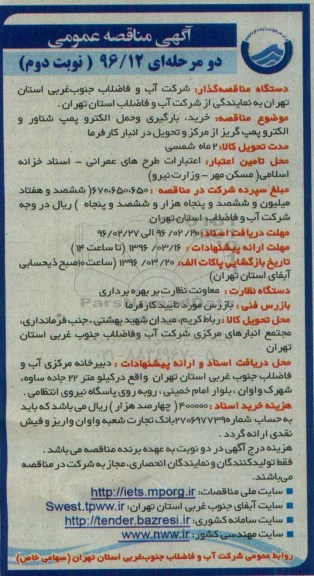 آگهی مناقصه عمومی
دو مرحله‌ای ۹۶/۱۲ ( نوبت دوم)
دستگاه مناقصه‌گذار: شرکت آب و فاضلاب جنوب‌غربی استان
تهران به نمایندگی از شرکت آب و فاضلاب استان تهران .
موضوع مناقصه: خرید، بارگیری وحمل الکترو پمپ شناور و
الکترو پمپ گریز از مرکز و تحویل در انبار کارفرما
مدت تحویل کالا: ۲ ماه شمسی
محل تامین اعتبار: اعتبارات طرح های عمرانی - اسناد خزانه
اسلامی( مسکن مهر - وزارت نیرو)
مبلغ سپرده شرکت در مناقصه : ۶۷۰،۶۵۰،۶۵۰( ششصد و هفتاد
میلیون و ششصد و پنجاه هزار و ششصد و پنجاه ) ریال در وجه
شرکت آب و فاضلاب استان تهران
مهلت دریافت اسناد: ۹۶/۰۲/۲۰ الی ۹۶/۰۲/۲۷
مهلت ارائه پیشنهادات : ۱۳۹۶/۰۳/۱۶ (تا ساعت ۱۴ )
تاریخ بازگشایی پاکات الف: ۱۳۹۶/۰۳/۲۰ (ساعت۱۰صبح ذیحسابی
آبفای استان تهران)
دستگاه نظارت : معاونت نظارت بر بهره برداری
بازرس فنی : بازرس مورد تایید کارفرما
محل تحویل کالا : رباط کریم، میدان شهید بهشتی ، جنب فرمانداری،
مجتمع انبارهای مرکزی شرکت آب وفاضلاب جنوب غربی استان
تهران
محل دریافت اسناد و ارائه پیشنهادات : دبیرخانه مرکزی آب و
فاضلاب جنوب غربی استان تهران واقع درکیلو متر ۲۲ جاده ساوه،
شهرک واوان ، بلوار امام خمینی ، روبه روی پاسگاه نیروی انتظامی .
هزینه خرید اسناد : ۴۰۰۰۰۰ ( چهارصد هزار ) ریال می باشد که باید
به حساب شماره ۲۷۰۶۹۷۷۳۹۰بانک تجارت شعبه واوان واریز و فیش
نقدی ارائه گردد .
هزینه درج آگهی در دو نوبت به عهده برنده مناقصه می باشد .
فقط تولیدکنندگان و نمایندگان انحصاری، مجاز به شرکت در مناقصه
می‌باشند.
سایت ملی مناقصات: http://iets.mporg.ir
سایت آبفای جنوب غربی استان تهران: Swest.tpww.ir
سایت سامانه کشوری: http://tender.bazresi.ir
سایت مهندسی کشور: www.nww.ir
روابط عمومی شرکت آب و فاضلاب جنوب‌غربی استان تهران (سهامی خاص)